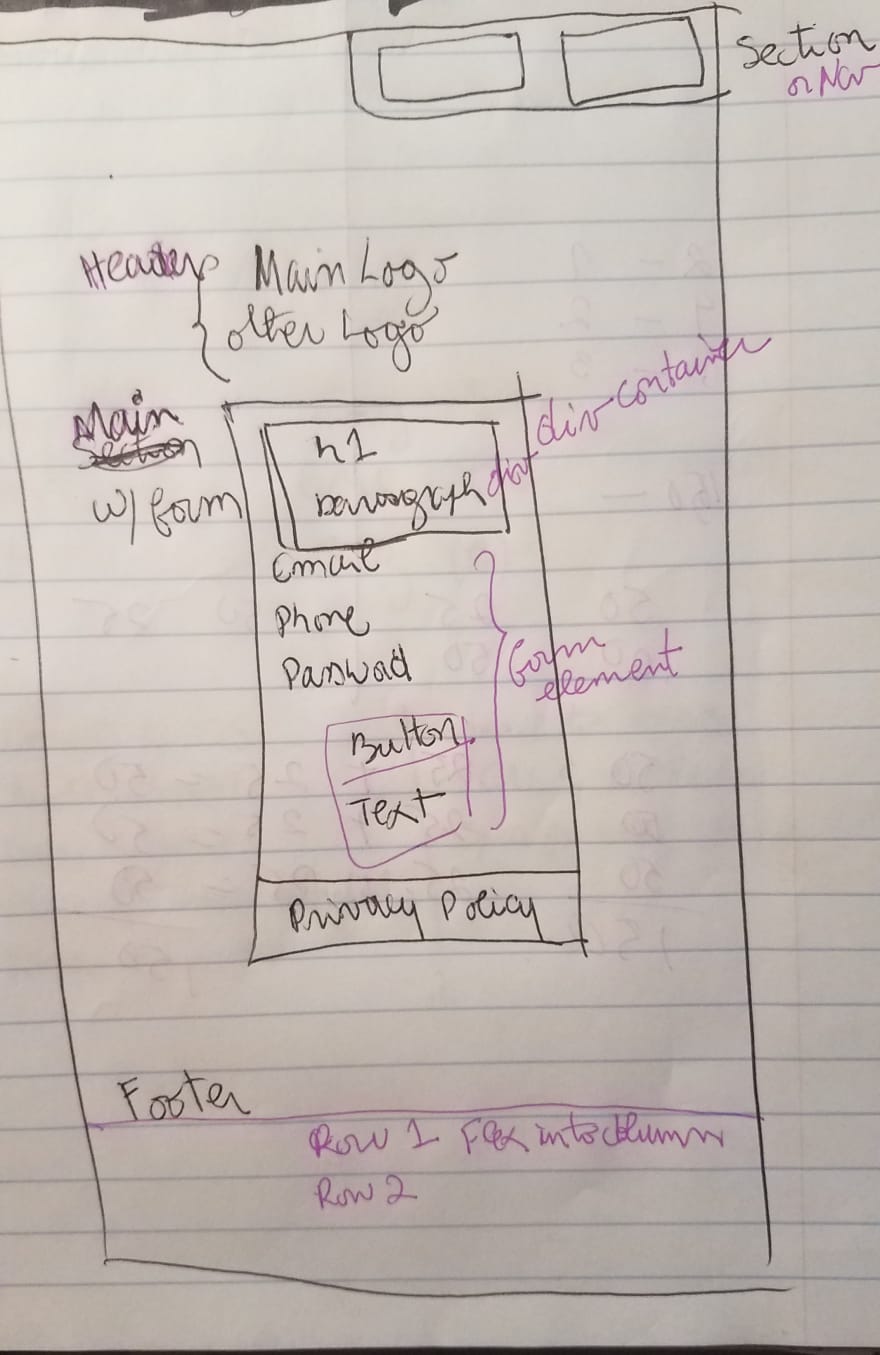 Section
or Nav
Header Main Logo
other Logo
Main
Section
w/ form
div container
h1
paragraph div
Email
Phone
Password
form
element
Button
Text
Privacy Policy
Footer
Row 1 Flex into column
Row 2